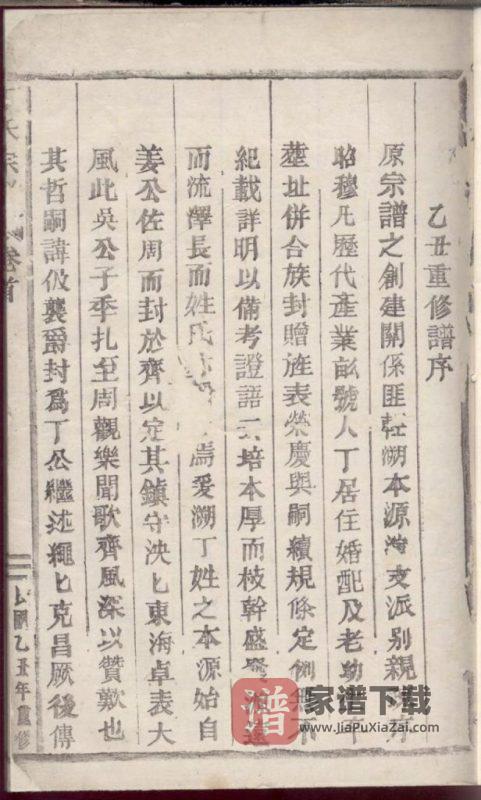 乙丑重修譜序
原宗譜之創建關係匪輕溯本源 支派別親
昭穆凡歷代產業畝號人丁居住婚配及老幼
塋址併合族封贈旌表榮慶與嗣續規條定例
紀載詳明以備考證語云培本厚而枝幹盛
而流澤長而姓氏 焉爰溯丁姓之本源始自
姜公佐周而封於齊以定其鎮守泱匕東海卓表大
風此吳公子季扎至周觀樂聞歌齊風深以贊歎也
其哲嗣諱伋襲爵封為丁公繼述繩匕克昌厥後傳
卷首
民國乙丑年重修
譜
家谱下载
www.JiaPuXiaZai.com